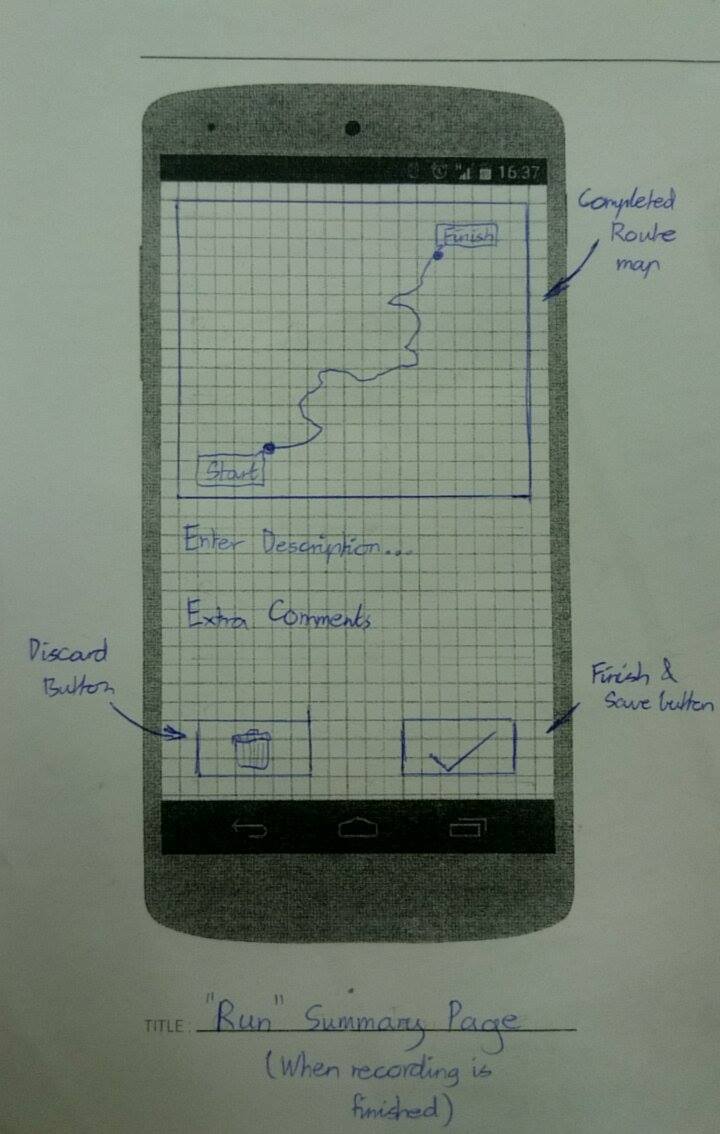 16:37
Completed
Route
map
Finish
Start
Enter Description...
Extra Comments
Discard
Button
Finish &
Save button
TITLE: "Run" Summary Page
(When recording is
finished)